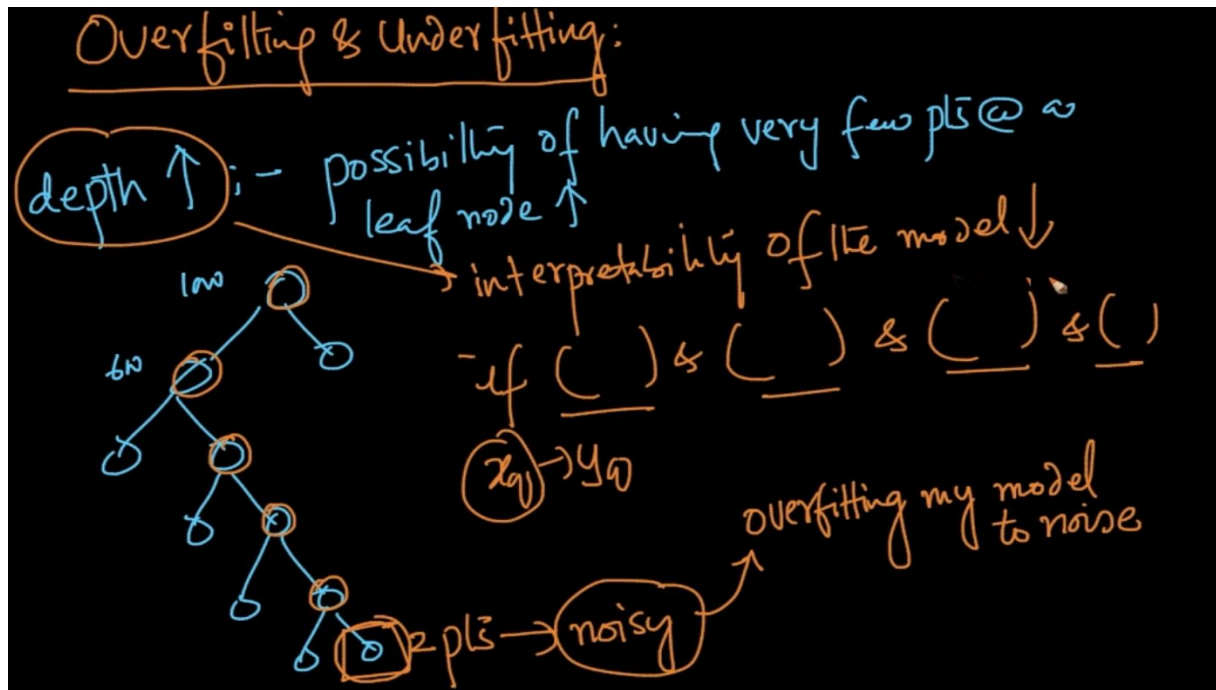 Overfitting & Underfitting:
depth ↑ ; - possibility of having very few pts @ a
leaf node ↑
→ interpretability of the model ↓
- if ( ) & ( ) & ( ) & ( )
xq → yq
overfitting my model
to noise
2 pts → noisy